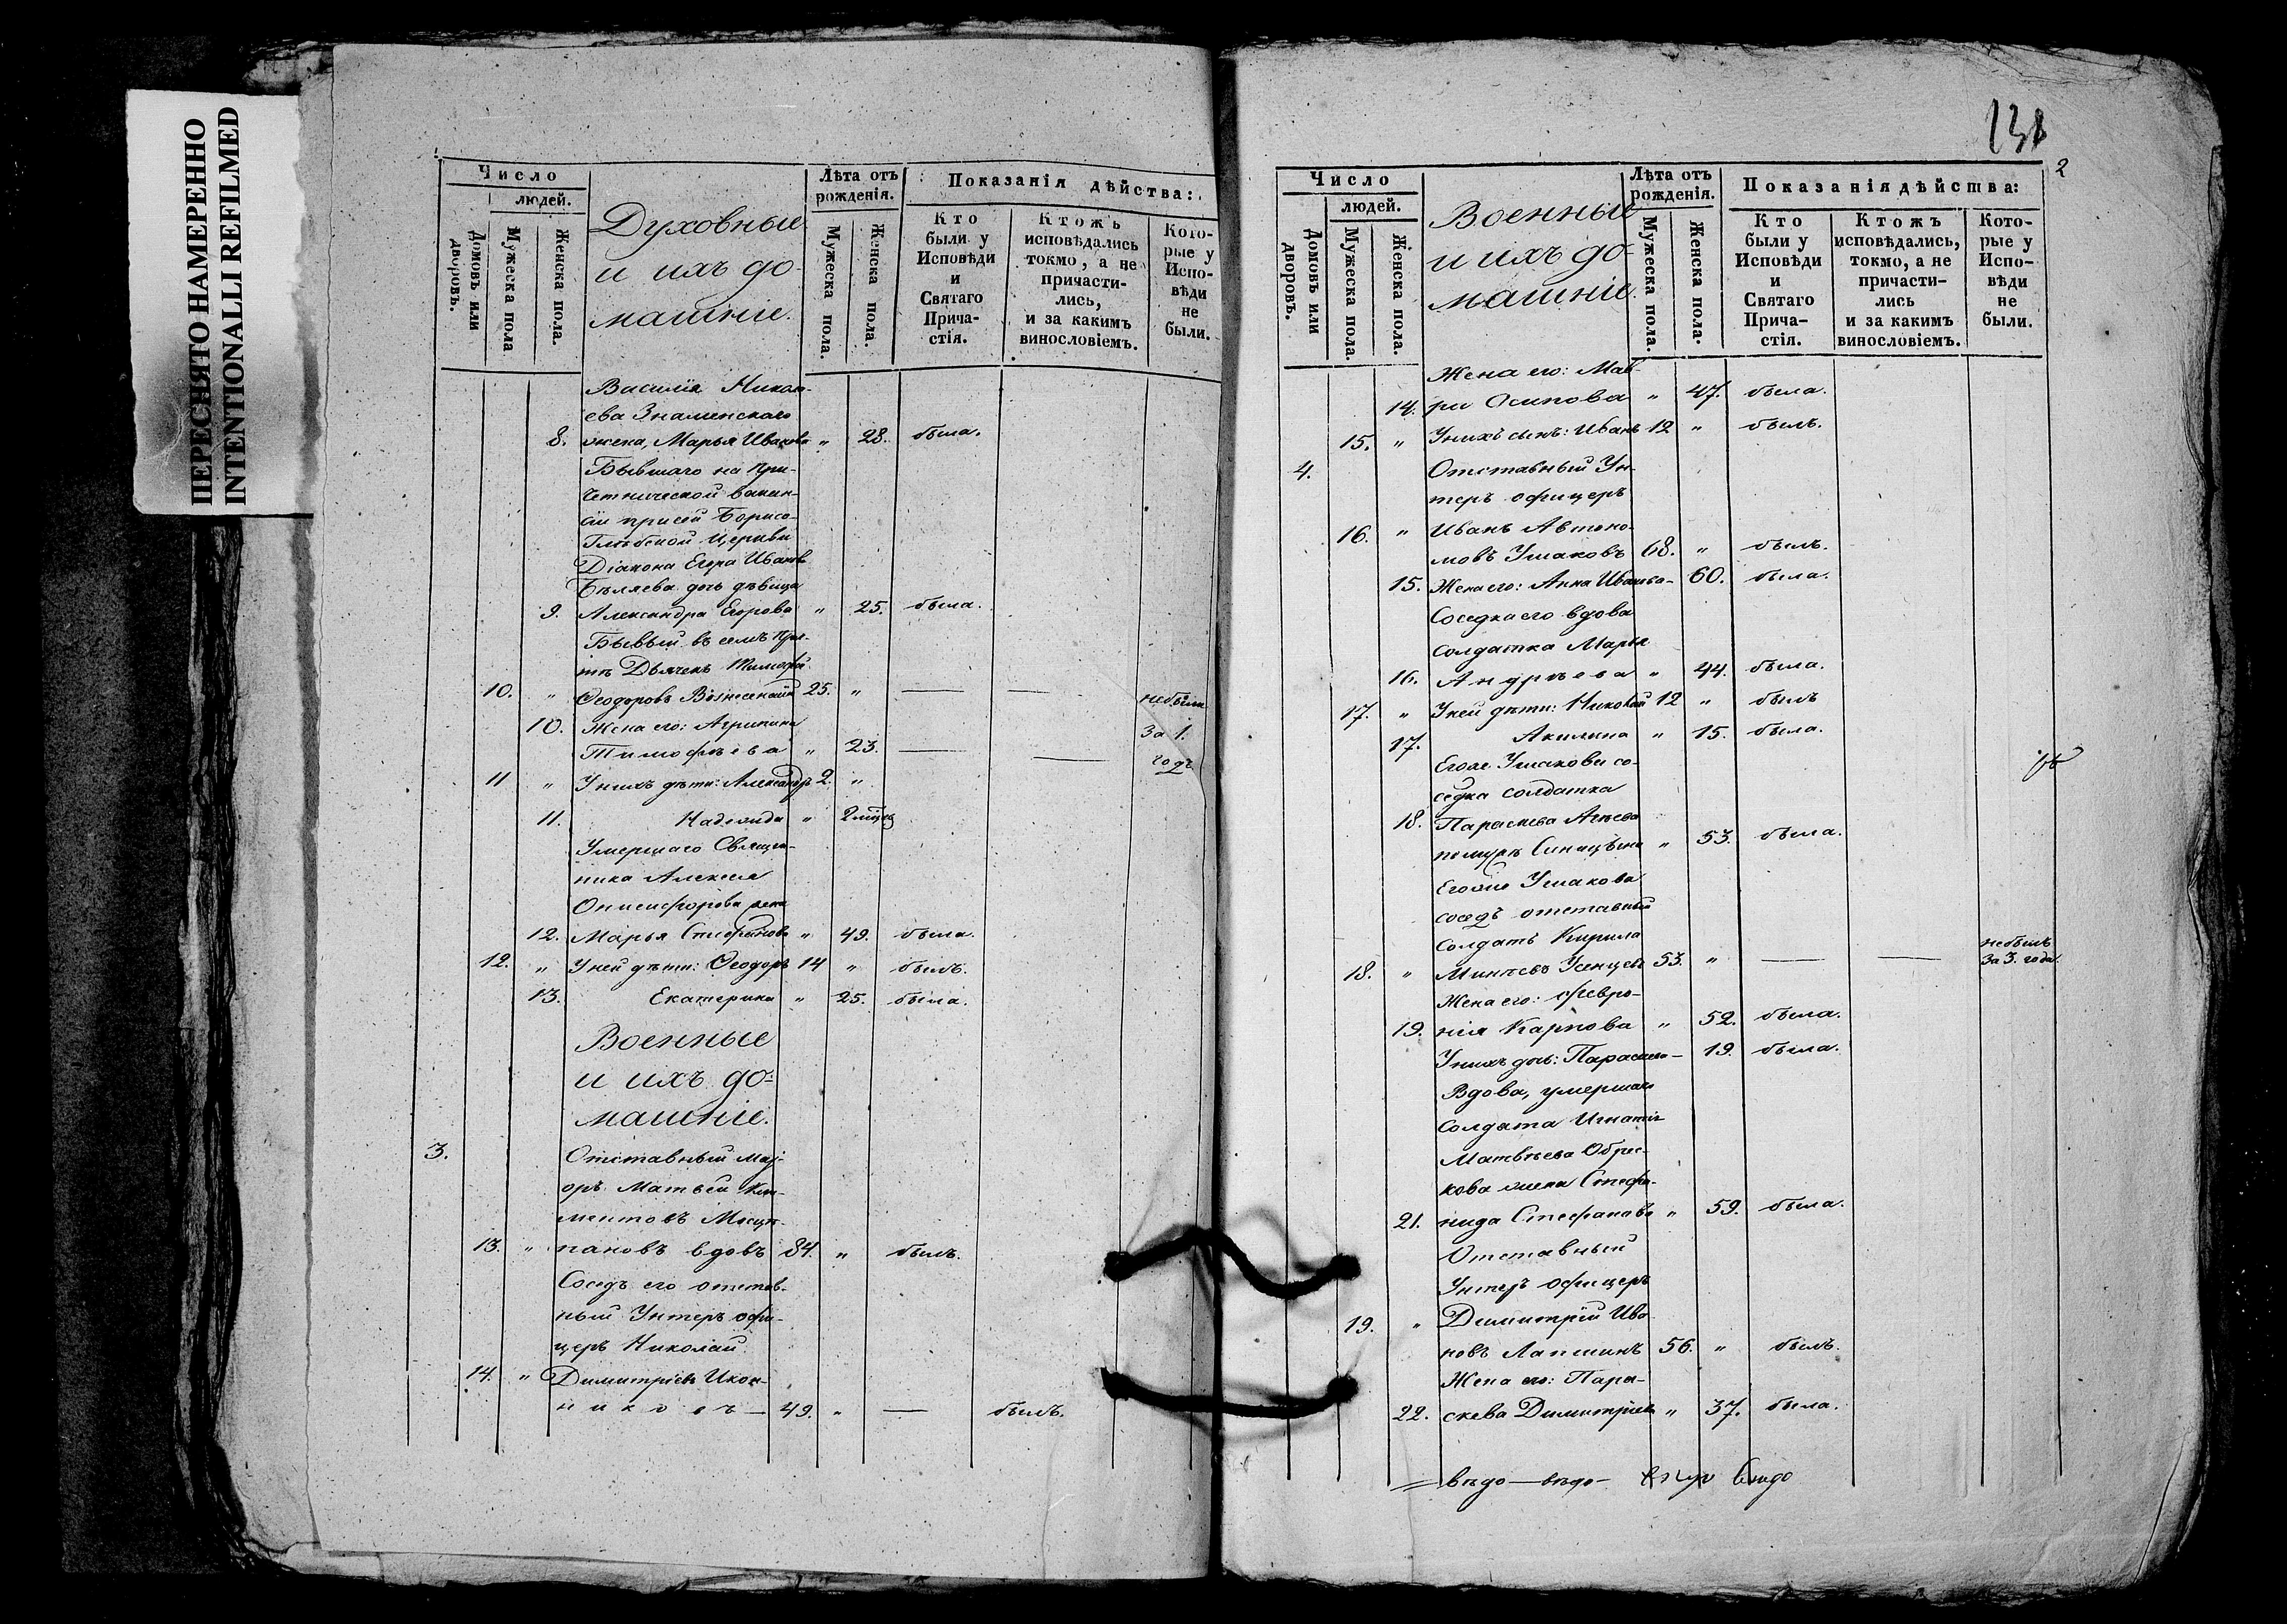 ПЕРЕСНЯТО НАМЕРЕННО
INTENTIONALLI REFILMED
Число
людей.
Домовъ или дворовъ.
Мужеска пола
Женска пола.
Духовные
и ихъ до-
машніе.
Лѣта отъ рожденія.
Мужеска пола.
Женска пола.
Показанія дѣйства:
Кто были у Исповѣди и Святаго Прича- стія.
Ктожъ исповѣдались токмо, а не причасти- лись, и за какимъ винословіемъ.
Кото- рые у Испо- вѣди не были.
Василія Никола-
ева Знаменскаго
8. жена, Марья Иванова „ 28. была.
Бывшаго на при-
четнической вакан-
сіи при сей Борисо-
Глѣбской Церкви
Діакона Егора Иванов
Бѣляева дочь дѣвица
9. Александра Егорова „ 25. была.
Бывый въ семъ при-
тѣ Дьячекъ Тимофей
10. „ Ѳеодоровъ Вознесенскій 25. „ — — небыли
10. Жена его: Агрипина За 1.
Тимофѣева „ 23. — — годъ
11 „ У нихъ дѣти: Александръ 2. „
11. Надежда „ 2 мѣс
Умершаго Священ-
ника Алексея
Онисифорова жена
12. Марья Стефанова „ 49. была.
12. „ У ней дѣти: Ѳеодоръ 14 „ былъ.
13. Екатерина „ 25. была.
Военные
и ихъ до-
машніе.
3. Отставный Маі-
оръ Матвей Кли-
ментовъ
13. „ пановъ вдовъ 84. „ былъ.
Соседъ его отстав-
ный Унтеръ офи-
церъ Николай
14. „ Димитріевъ Икон-
никовъ — 49. „ — былъ.
131
2
Число
людей.
Домовъ или дворовъ.
Мужеска пола.
Женска пола.
Военные
и ихъ до-
машніе.
Лѣта отъ рожденія.
Мужеска пола.
Женска пола.
Показанія дѣйства:
Кто были у Исповѣди и Святаго Прича- стія.
Ктожъ исповѣдались, токмо, а не причасти- лись и за какимъ винословіемъ.
Кото- рые у Испо- вѣди не были.
Жена его: Мав-
14. ра Осипова „ 47. была.
15. „ У нихъ сынъ: Иванъ 12 „ былъ.
4. Отставный Ун-
теръ офицеръ
16. „ Иванъ Автоно-
мовъ Ушаковъ 68. „ былъ.
15. Жена его: Анна Иванова - 60. была.
Соседка его вдова
солдатка Марья
16. Андрѣева „ 44. была.
17. „ У ней дѣти: Николай 12 „ былъ
17. Акилина „ 15. была.
Егоже Ушакова со-
седка солдатка
18. Параскева Агѣева
по мужѣ „ 53. была.
Егоже Ушакова
соседъ отставный
солдатъ Кирила
18. „ Минѣевъ Усенцевъ 53. „ — — небылъ за 3. года
Жена его: Февро-
19. нія Карпова „ 52. была.
У нихъ дочь: Параскева — 19. была.
Вдова, умершаго
солдата Игнатія
Матвѣева Обрес-
кова жена Степа-
21. нида Стефанова „ 59. была.
Отставный
Унтеръ офицеръ
19. „ Димитрій Ива-
новъ Лапшинъ 56. „ былъ.
Жена его: Пара-
22. скева Димитріева „ 37. была.